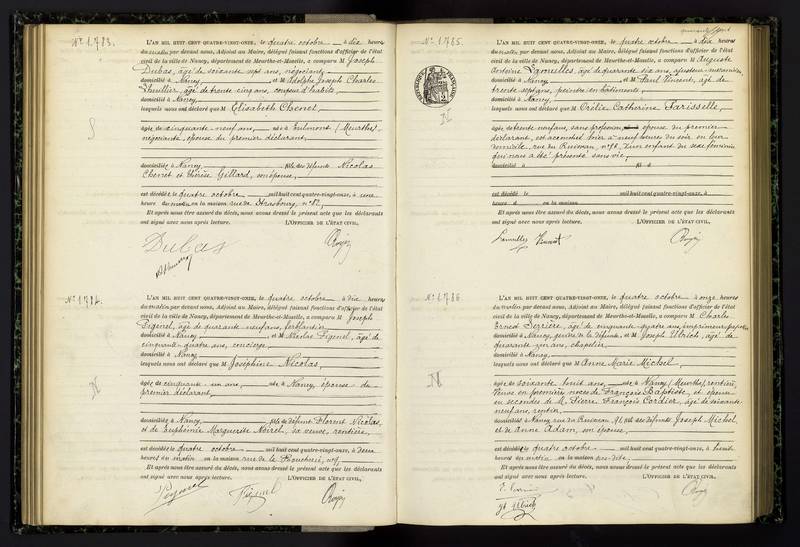 N° 1.783.
L'AN MIL HUIT CENT QUATRE-VINGT-ONZE, le quatre octobre à dix heures
du matin par devant nous, Adjoint au Maire, délégué faisant fonctions d'officier de l'état
civil de la ville de Nancy, département de Meurthe-et-Moselle, a comparu M Joseph
Dubas, âgé de soixante sept ans, négociant
domicilié à Nancy et M Adolphe Joseph Charles
âgé de trente cinq ans, coupeur d'habits,
domicilié à Nancy
lesquels nous ont déclaré que M Elisabeth Chenet,
âgée de cinquante neuf ans, née à Pulmont (Meurthe),
négociante, épouse du premier déclarant,
domiciliée à Nancy fille des défunts Nicolas
Chenet et Thérèse Gillard, son épouse,
est décédée le quatre octobre mil huit cent quatre-vingt-onze, à une
heure du matin en la maison rue de Strasbourg, n° 82,
Et après nous être assuré du décès, nous avons dressé le présent acte que les déclarants
ont signé avec nous après lecture. L'OFFICIER DE L'ÉTAT CIVIL,
Dubas
N° 1.784.
L'AN MIL HUIT CENT QUATRE-VINGT-ONZE, le quatre octobre à dix heures
du matin par devant nous, Adjoint au Maire, délégué faisant fonctions d'officier de l'état
civil de la ville de Nancy, département de Meurthe-et-Moselle, a comparu M Joseph
Pigenel, âgé de quarante neuf ans, ferblantier
domicilié à Nancy et M Nicolas Pigenel, âgé de
cinquante quatre ans, concierge
domicilié à Nancy
lesquels nous ont déclaré que M Joséphine Nicolas,
âgée de cinquante un ans, née à Nancy, épouse du
premier déclarant,
domiciliée à Nancy fille de défunt Florent Nicolas,
et de Euphémie Marguerite Noirel, sa veuve, rentière,
est décédée le quatre octobre mil huit cent quatre-vingt-onze, à deux
heures du matin en la maison rue de la Boucherie, neuf
Et après nous être assuré du décès, nous avons dressé le présent acte que les déclarants
ont signé avec nous après lecture. L'OFFICIER DE L'ÉTAT CIVIL,
Pigenel Pigenel
N° 1.785.
L'AN MIL HUIT CENT QUATRE-VINGT-ONZE, le quatre octobre à dix heures
du matin par devant nous, Adjoint au Maire, délégué faisant fonctions d'officier de l'état
civil de la ville de Nancy, département de Meurthe-et-Moselle, a comparu M Auguste
Antoine âgé de quarante six ans, ajusteur-mécanicien
domicilié à Nancy et M Paul Vincent, âgé de
trente sept ans, peintre en bâtiments
domicilié à Nancy,
lesquels nous ont déclaré que M Orélie Catherine Parisselle,
âgée de trente neuf ans, sans profession, épouse du premier
déclarant, est accouchée hier à neuf heures du soir en leur
domicile, rue du Ruisseau, d'un enfant du sexe féminin
qui nous a été présenté sans vie,
domicilié à fil d
est décédé le mil huit cent quatre-vingt-onze, à
heure d en la maison
Et après nous être assuré du décès, nous avons dressé le présent acte que les déclarants
ont signé avec nous après lecture. L'OFFICIER DE L'ÉTAT CIVIL,
N° 1.786.
L'AN MIL HUIT CENT QUATRE-VINGT-ONZE, le quatre octobre à onze heures
du matin par devant nous, Adjoint au Maire, délégué faisant fonctions d'officier de l'état
civil de la ville de Nancy, département de Meurthe-et-Moselle, a comparu M Charles
Ernest Serrière, âgé de cinquante-quatre ans, imprimeur
domicilié à Nancy, gendre de la défunte, et M Joseph Ulrich, âgé de
quarante-un ans, chapelier
domicilié à Nancy
lesquels nous ont déclaré que M Anne Marie Michel,
âgée de soixante huit ans, née à Nancy (Meurthe), rentière,
Veuve en premières noces de François Baptiste, et épouse
en secondes de M. Pierre François Cordier, âgé de soixante
neuf ans, rentier,
domiciliée à Nancy, rue du Ruisseau, 91, fille des défunts Joseph Michel,
et de Anne Adam, son épouse,
est décédée le quatre octobre mil huit cent quatre-vingt-onze, à huit
heures du matin en la maison sus-dite,
Et après nous être assuré du décès, nous avons dressé le présent acte que les déclarants
ont signé avec nous après lecture. L'OFFICIER DE L'ÉTAT CIVIL,